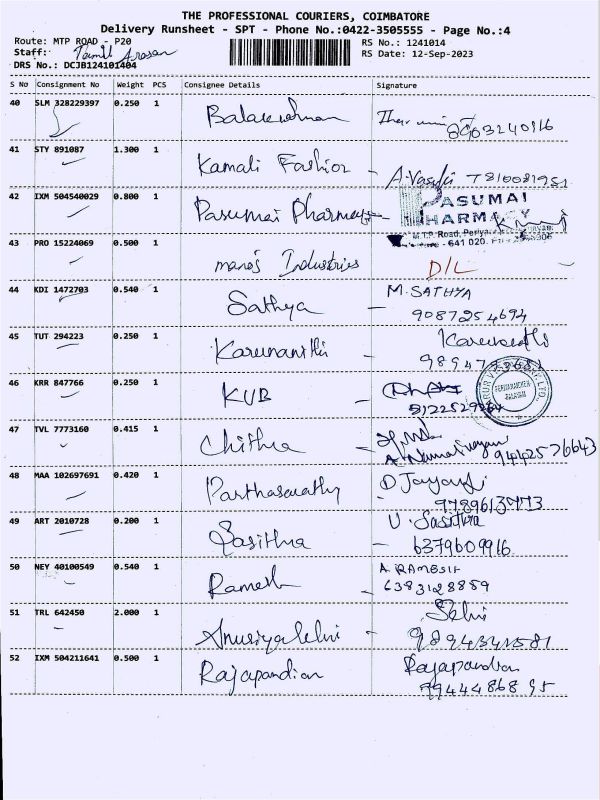 THE PROFESSIONAL COURIERS, COIMBATORE
Delivery Runsheet - SPT - Phone No.:0422-3505555 - Page No.:4
Route: MTP ROAD - P20
RS No.: 1241014
Staff: Tamil Arasan
RS Date: 12-Sep-2023
DRS No.: DCJB124101404
S No Consignment No Weight PCS Consignee Details Signature
40 SLM 328229397 0.250 1 Balakrishnan
41 STY 891087 1.300 1 Kamali Fashion - A. Vasuki 7810081951
42 IXM 504540029 0.800 1 Pasumai Pharmacy - PASUMAI
PHARMACY
M.T.P. Road, Periya
- 641 020.
43 PRO 15224069 0.500 1 manoj Industries D/L
44 KDI 1472703 0.540 1 Sathya - M. SATHYA
9087254694
45 TUT 294223 0.250 1 Karunanithi -
46 KRR 847766 0.250 1 KVB -
47 TVL 7773160 0.415 1 Chithra -
9442576643
48 MAA 102697691 0.420 1 Parthasarathy - D Jayanthi
49 ART 2010728 0.200 1 Sasithra - U. Sasithra
6379609916
50 NEY 40100549 0.540 1 Ramesh - A. RAMESH
6383128859
51 TRL 642450 2.000 1 Anusiyaselvi - Selvi
52 IXM 504211641 0.500 1 Rajapandian Rajapandian
7944486895